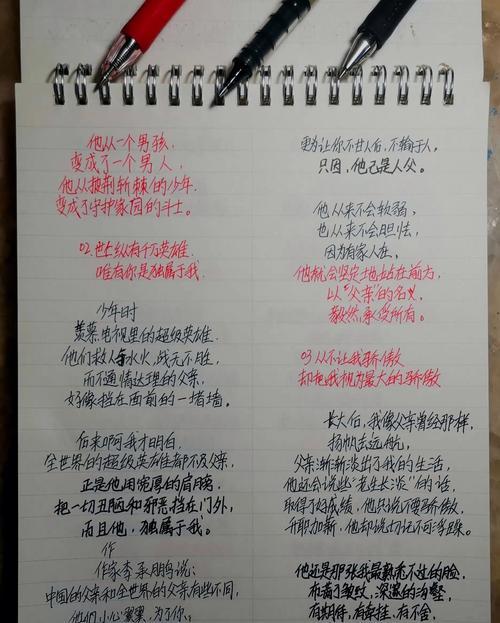 他从一个男孩,
变成了一个男人,
他从披荆斩棘的少年
变成了守护家园的斗士.
02.世上纵有千万英雄
唯有你是独属于我.
少年时
羡慕电视里的超级英雄.
他们救人于水火,战无不胜
而不通情达理的父亲,
好像挡在面前的一堵墙.
后来啊我才明白
全世界的超级英雄都不及父亲
正是他用宽厚的肩膀
把一切丑陋和邪恶挡在门外,
而且他,独属于我.
作
作家李承鹏说:
中国的父亲和全世界的父亲有些不同,
他们小心翼翼,为了你
更为让你不甘人后,不输于人.
只因,他已是人父.
他从来不会软弱,
也从来不会胆怯,
因为有家人在,
他就会坚定地站在前方,
以“父亲”的名义
毅然承受所有.
03从不让我骄傲
却把我视为最大的骄傲
长大后,我像父亲曾经那样,
扬帆去远航,
父亲渐渐淡出了我的生活,
他还会说些“老生长谈”的话,
取得了好成绩,他只说不要骄傲,
升职加薪,他却说切记不可浮躁.
他还是那张我最熟悉不过的脸,
布满了皱纹,深邃的
有期待,有牵挂,有不舍